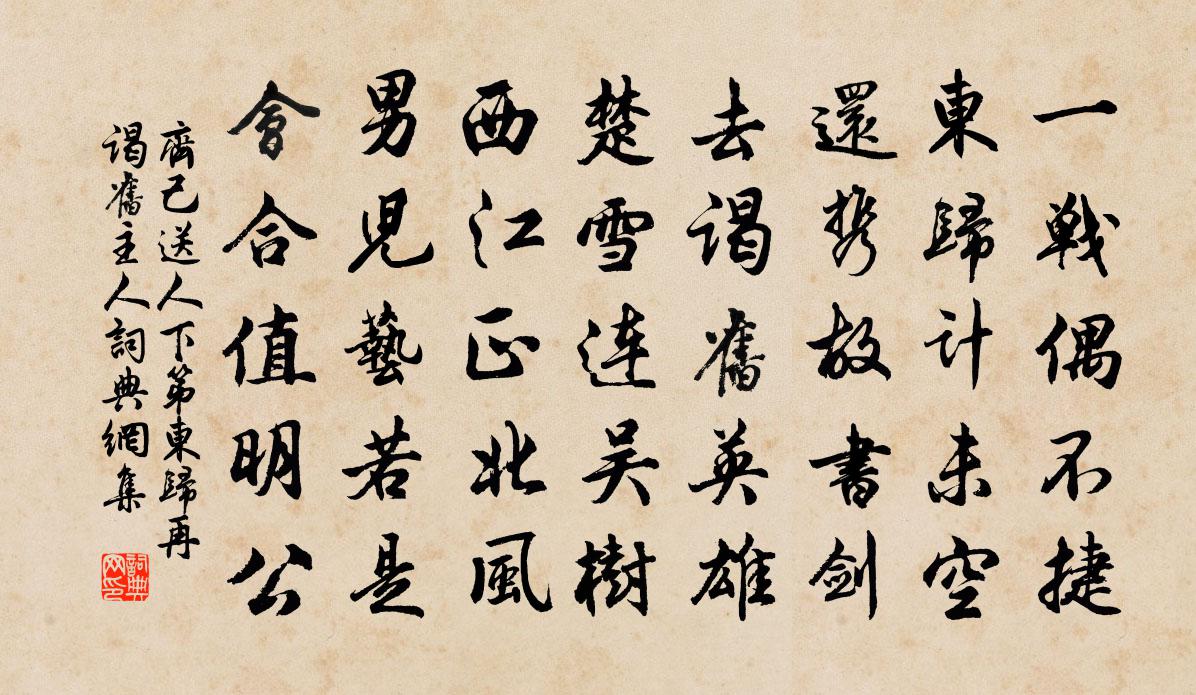 一戰偶不捷
東歸計未空
還携故書劍
去謁舊英雄
楚雪連吳樹
西江正北風
男兒藝若是
會合值明公
齊己送人下第東歸再
謁舊主人詞典網集
詞典
网印